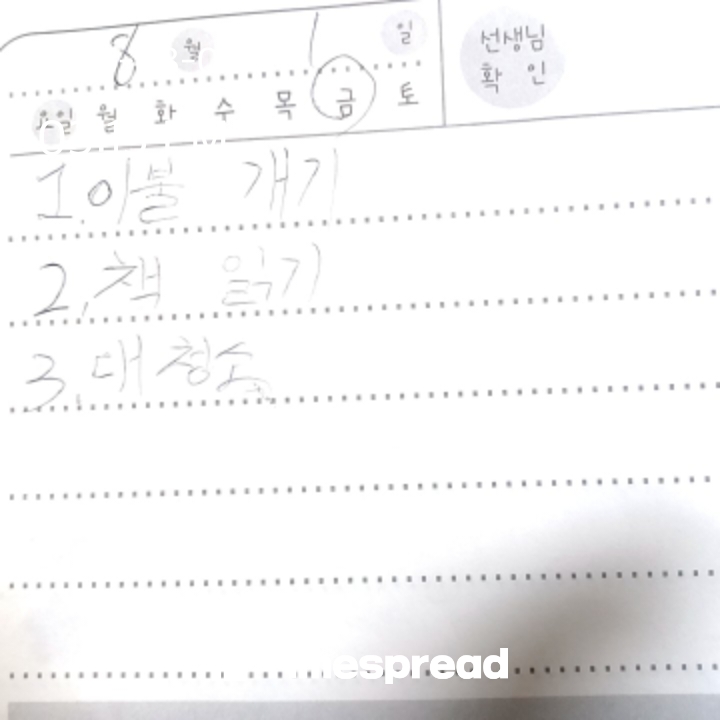 8 월 1 일 선생님
확 인
요일 월 화 수 목 금 토
1.이불 개기
2.책 읽기
3.대청소